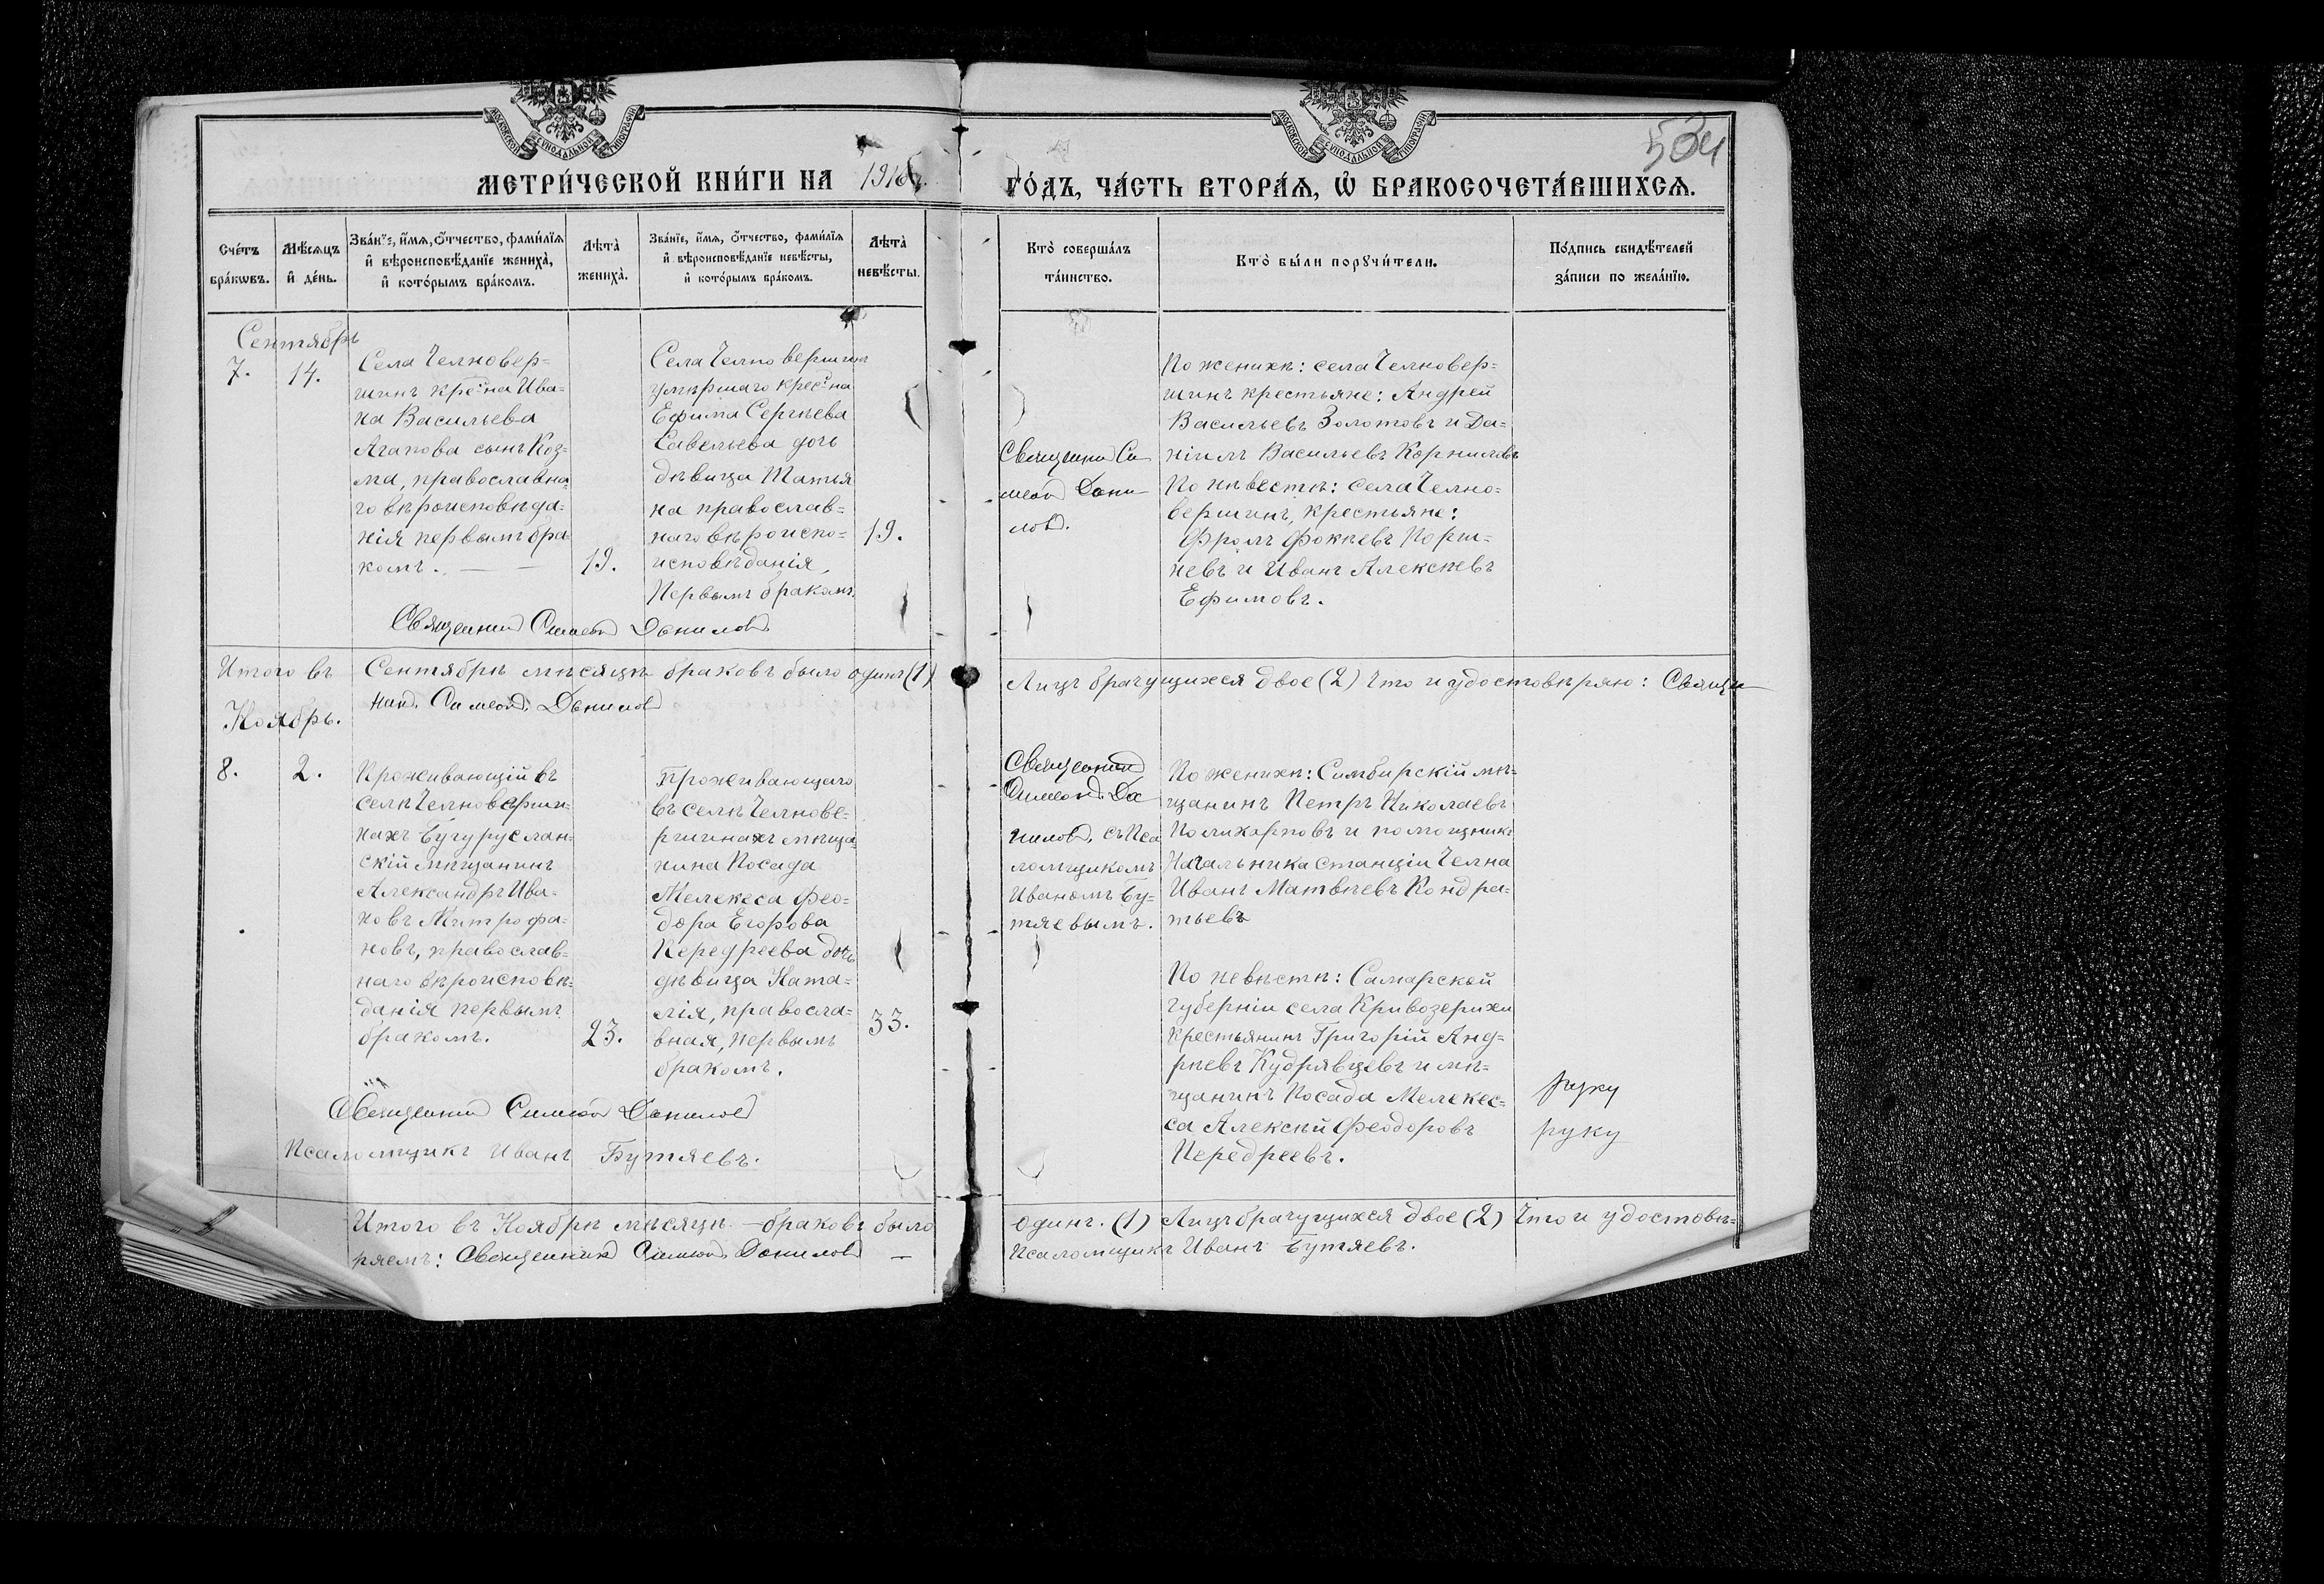 МОСКОВСКОЙ СѴНОДАЛЬНОЙ ТИПОГРАФІИ
МОСКОВСКОЙ СѴНОДАЛЬНОЙ ТИПОГРАФІИ
МЕТРИ́ЧЕСКОЙ КНИ́ГИ НА
ГО́ДЪ, ЧА́СТЬ ВТОРА́Ѧ, Ѽ БРАКОСОЧЕТА́ВШИХСѦ.
Сче́тъ бра́кѡвъ.
Мѣ́сѧцъ и҆ де́нь.
Зва́нїе, и҆́мѧ, ѻ҆́тчество, фами́лїѧ и҆ вѣроисповѣ́данїе жениха̀, и҆ кото́рымъ бра́комъ.
Лѣта̀ жениха̀.
Зва́нїе, и҆́мѧ, ѻ҆́тчество, фами́лїѧ и҆ вѣроисповѣ́данїе невѣ́сты, и҆ кото́рымъ бра́комъ.
Лѣта̀ невѣ́сты.
Кто̀ соверша́лъ та́инство.
Кто̀ бы́ли порꙋчи́тели.
По́дпись свидѣ́телей за́писи по жела́нїю.
Сентябрь
7.
14.
Села Челновер=
шинъ кре-на Ива=
на Васильева
Агапова сынъ Коз=
ма, православна=
го вѣроисповѣда=
нія первымъ бра
комъ. — —
19.
Села Челновершинъ
умершаго крес-на
Ефима Сергѣева
Савельева дочь
дѣвица Татья
на православ=
наго вѣроиспо=
исповѣданія,
Первымъ бракомъ.
19.
Священни Си
меон Дани
лов.
По женихѣ: села Челновер=
шинъ крестьяне: Андрей
Васильевъ Золотовъ и Да=
ніилъ Васильевъ Корниловъ
По невѣстѣ: села Челно=
вершинъ, крестьяне:
Фролъ Фокѣевъ Порш=
невъ и Иванъ Алексѣевъ
Ефимовъ.
Священник Симеон Данилов
Итого въ Сентябрѣ мѣсяцѣ браковъ было одинъ (1)
Лицъ брачущихся двое (2) Что и удостовѣряю: Священ
ник. Симеон. Данилов
Ноябрь.
8.
2.
Проживающій въ
селѣ Челновершин=
нахъ Бугуруслан=
скій мѣщанинъ
Александръ Ива=
новъ Митрофа=
новъ, православ=
наго вѣроисповѣ=
данія первымъ
бракомъ.
23.
Проживающаго
въ селѣ Челнове=
ршинахъ мѣща=
нина Посада
Мелекеса Фео=
дора Егорова
Передреева дочь
дѣвица Ната=
лія, правосла=
вная, первымъ
бракомъ.
33.
Священник
Симеон. Да
нилов, съ Пса
ломщикомъ
Иваномъ Бу=
тяевымъ.
По женихѣ: Симбирскій мѣ=
щанинъ Петръ Николаевъ
Поликарповъ и помощникъ
Начальника станціи Челна
Иванъ Матвѣевъ Кондра=
тьевъ
По невѣстѣ: Самарской
губерніи села Кривозерихи
крестьянинъ Григорій Анд=
рѣевъ Кудрявцевъ и мѣ=
щанинъ Посада Мелекес=
са Алексѣй Феодоровъ
Передреевъ.
руку
руку
Священник Симеон Данилов
Псаломщикъ Иванъ Бутяевъ.
Итого въ Ноябрѣ мѣсяцѣ — браковъ было
одинъ. (1) Лицъ брачущихся двое (2) Что и удостовѣ=
ряемъ: Священник Симеон. Данилов —
Псаломщикъ Иванъ Бутяевъ.